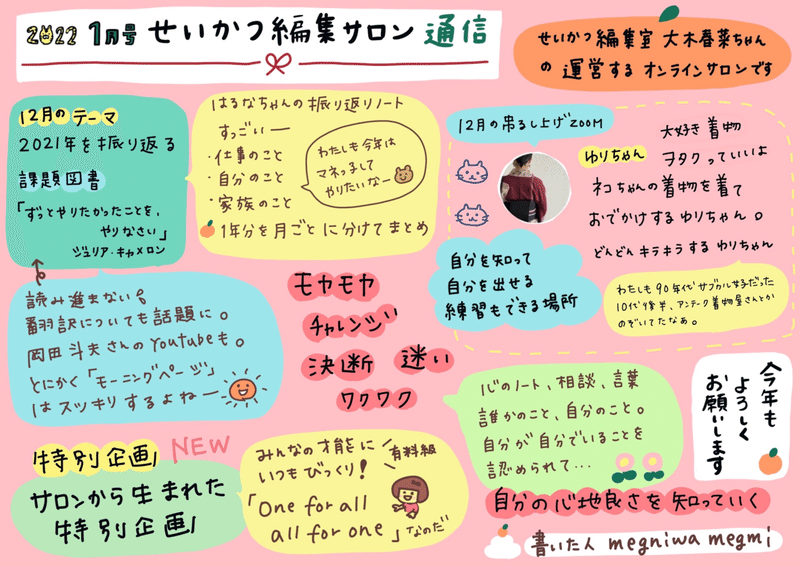 2022 1月号 せいかつ編集サロン 通信
せいかつ編集室 大木春菜ちゃん
の 運営する オンラインサロンです
12月のテーマ
2021年を振り返る
課題図書
「ずっとやりたかったことを、
やりなさい」
ジュリア・キャメロン
はるなちゃんの振り返りノート
すっごいー
・仕事のこと
・自分のこと
・家族のこと
1年分を月ごとに分けてまとめ
わたしも今年は
マネっこして
やりたいなー
12月の吊るし上げZOOM
大好き着物
ゆりちゃん
ヲタクっていいよ
ネコちゃんの着物を着て
おでかけするゆりちゃん。
どんどんキラキラするゆりちゃん
わたしも90年代サブカル女子だった
10代後半、アンテーク着物屋さんとか
のぞいてたなぁ。
自分を知って
自分を出せる
練習もできる場所
読み進まない
翻訳についても話題に。
岡田斗夫さんのYoutubeも。
とにかく「モーニングページ」
はスッキリするよねー
モヤモヤ
チャレンジ
決断 迷い
ワクワク
心のノート、相談、言葉
誰かのこと、自分のこと。
自分が自分でいることを
認められて...
自分の心地良さを知っていく
今年も
よろしく
お願いします
特別企画 NEW
サロンから生まれた
特別企画
みんなの才能に
いつもびっくり!
有料級
「One for all
all for one」なのだ
書いた人 megniwa megmi